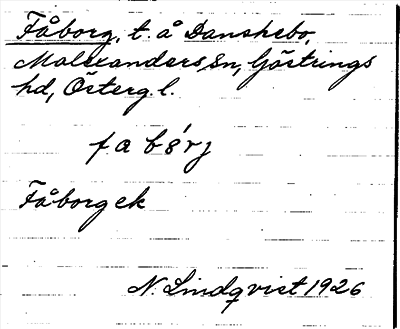 Fåborg, t. å Danskebo,
Malexanders sn, Göstrings
hd, Österg. l.
fabo̍rj
Fåborg ek
N. Lindqvist 1926